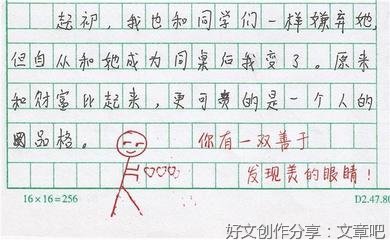 起初,我也和同学们一样嫌弃她,
但自从和她成为同桌后我变了。原来
和财富比起来,更可贵的是一个人的
品格。
你有一双善于
发现美的眼睛!
16×16=256
D2.47.80
好文创作分享:文章吧